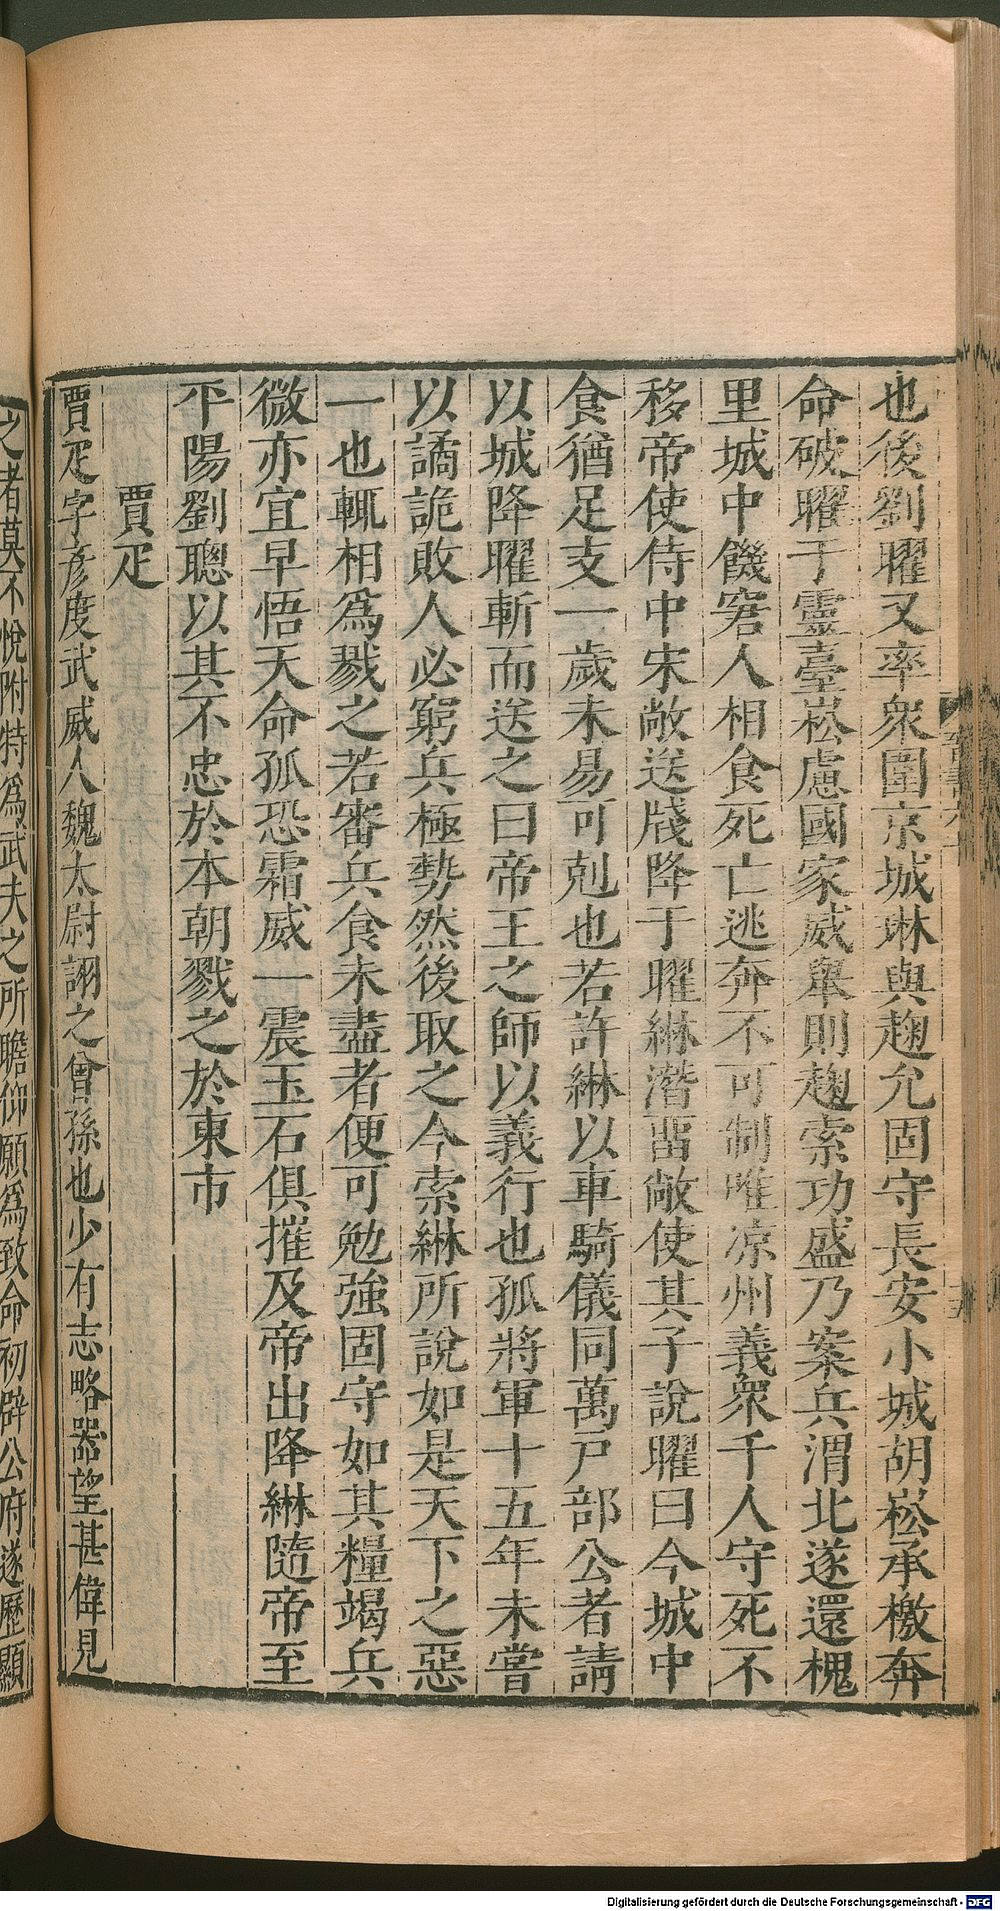 也後劉曜又率衆圍京城琳與麹允固守長安小城胡崧承檄奔
命破曜于靈臺崧慮國家威舉則麹索功盛乃案兵渭北遂還槐
里城中饑窘人相食死亡逃奔不可制唯凉州義衆千人守死不
移帝使侍中宋敞送牋降于曜綝潛畱敞使其子說曜曰今城中
食猶足支一歲未易可剋也若許綝以車騎儀同萬戶郡公者請
以城降曜斬而送之曰帝王之師以義行也孤將軍十五年未嘗
以譎詭敗人必窮兵極勢然後取之今索綝所說如是天下之惡
一也輒相爲戮之若審兵食未盡者便可勉強固守如其糧竭兵
微亦宜早悟天命孤恐霜威一震玉石俱摧及帝出降綝隨帝至
平陽劉聰以其不忠於本朝戮之於東市
賈疋
賈疋字彥度武威人魏太尉詡之曾孫也少有志略器望甚偉見
之者莫不悅附特爲武夫之所瞻仰願爲致命初辟公府遂歷顯
Digitalisierung gefördert durch die Deutsche Forschungsgemeinschaft - DFG